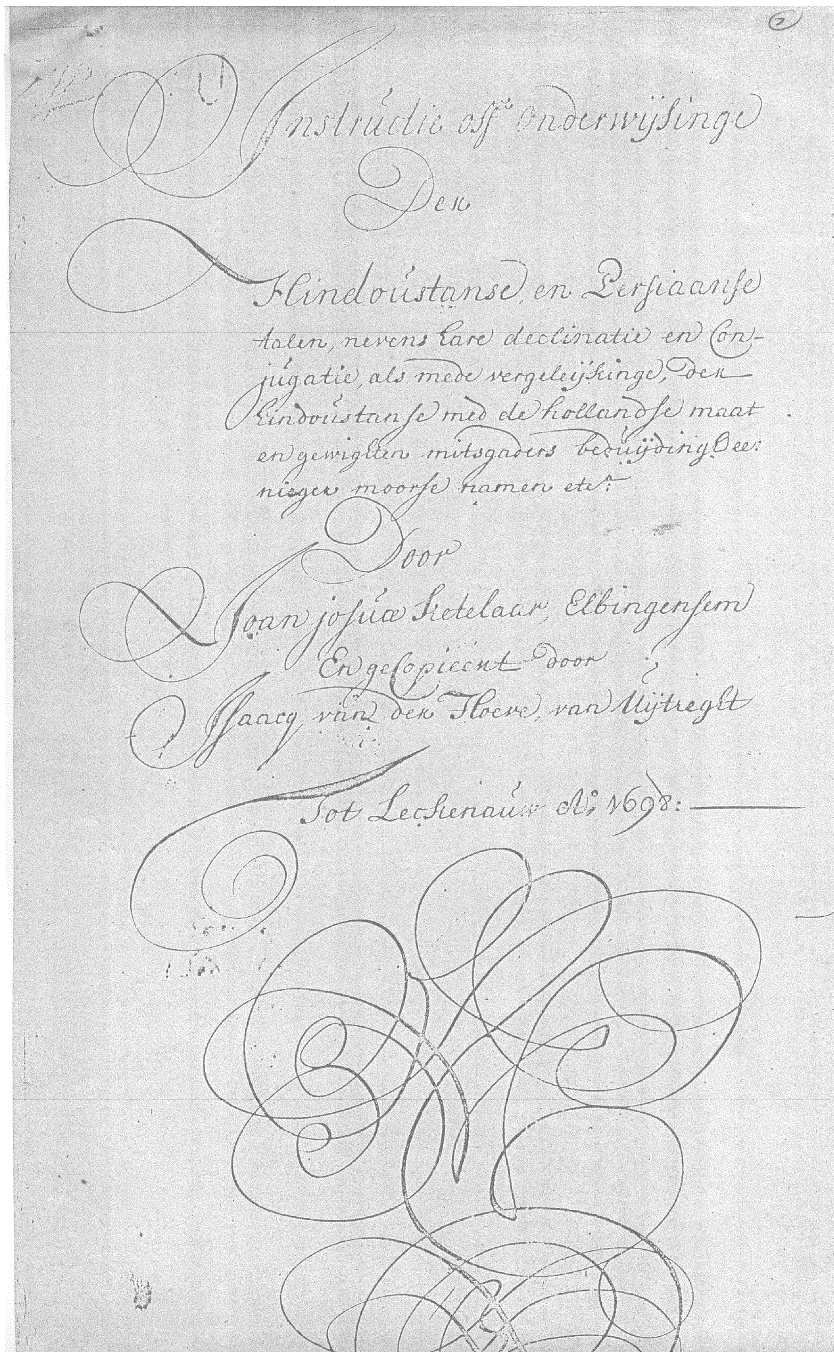 2
Instructie off onderwijsinge
Der
Hindoustanse, en Persiaanse
talen, nevens hare declinatie en Con-
jugatie, als mede vergeleijkinge, der
hindoustanse med de hollandse maat
en gewighten mitsgaders beduijdingh ee:
nieger moorse namen etc.a
Door
Joan josua Ketelaar, Elbingensem
En gecopieert door
Isaacq van der Hoeve, van Uijtreght
Tot Leckenauw Ao. 1698: